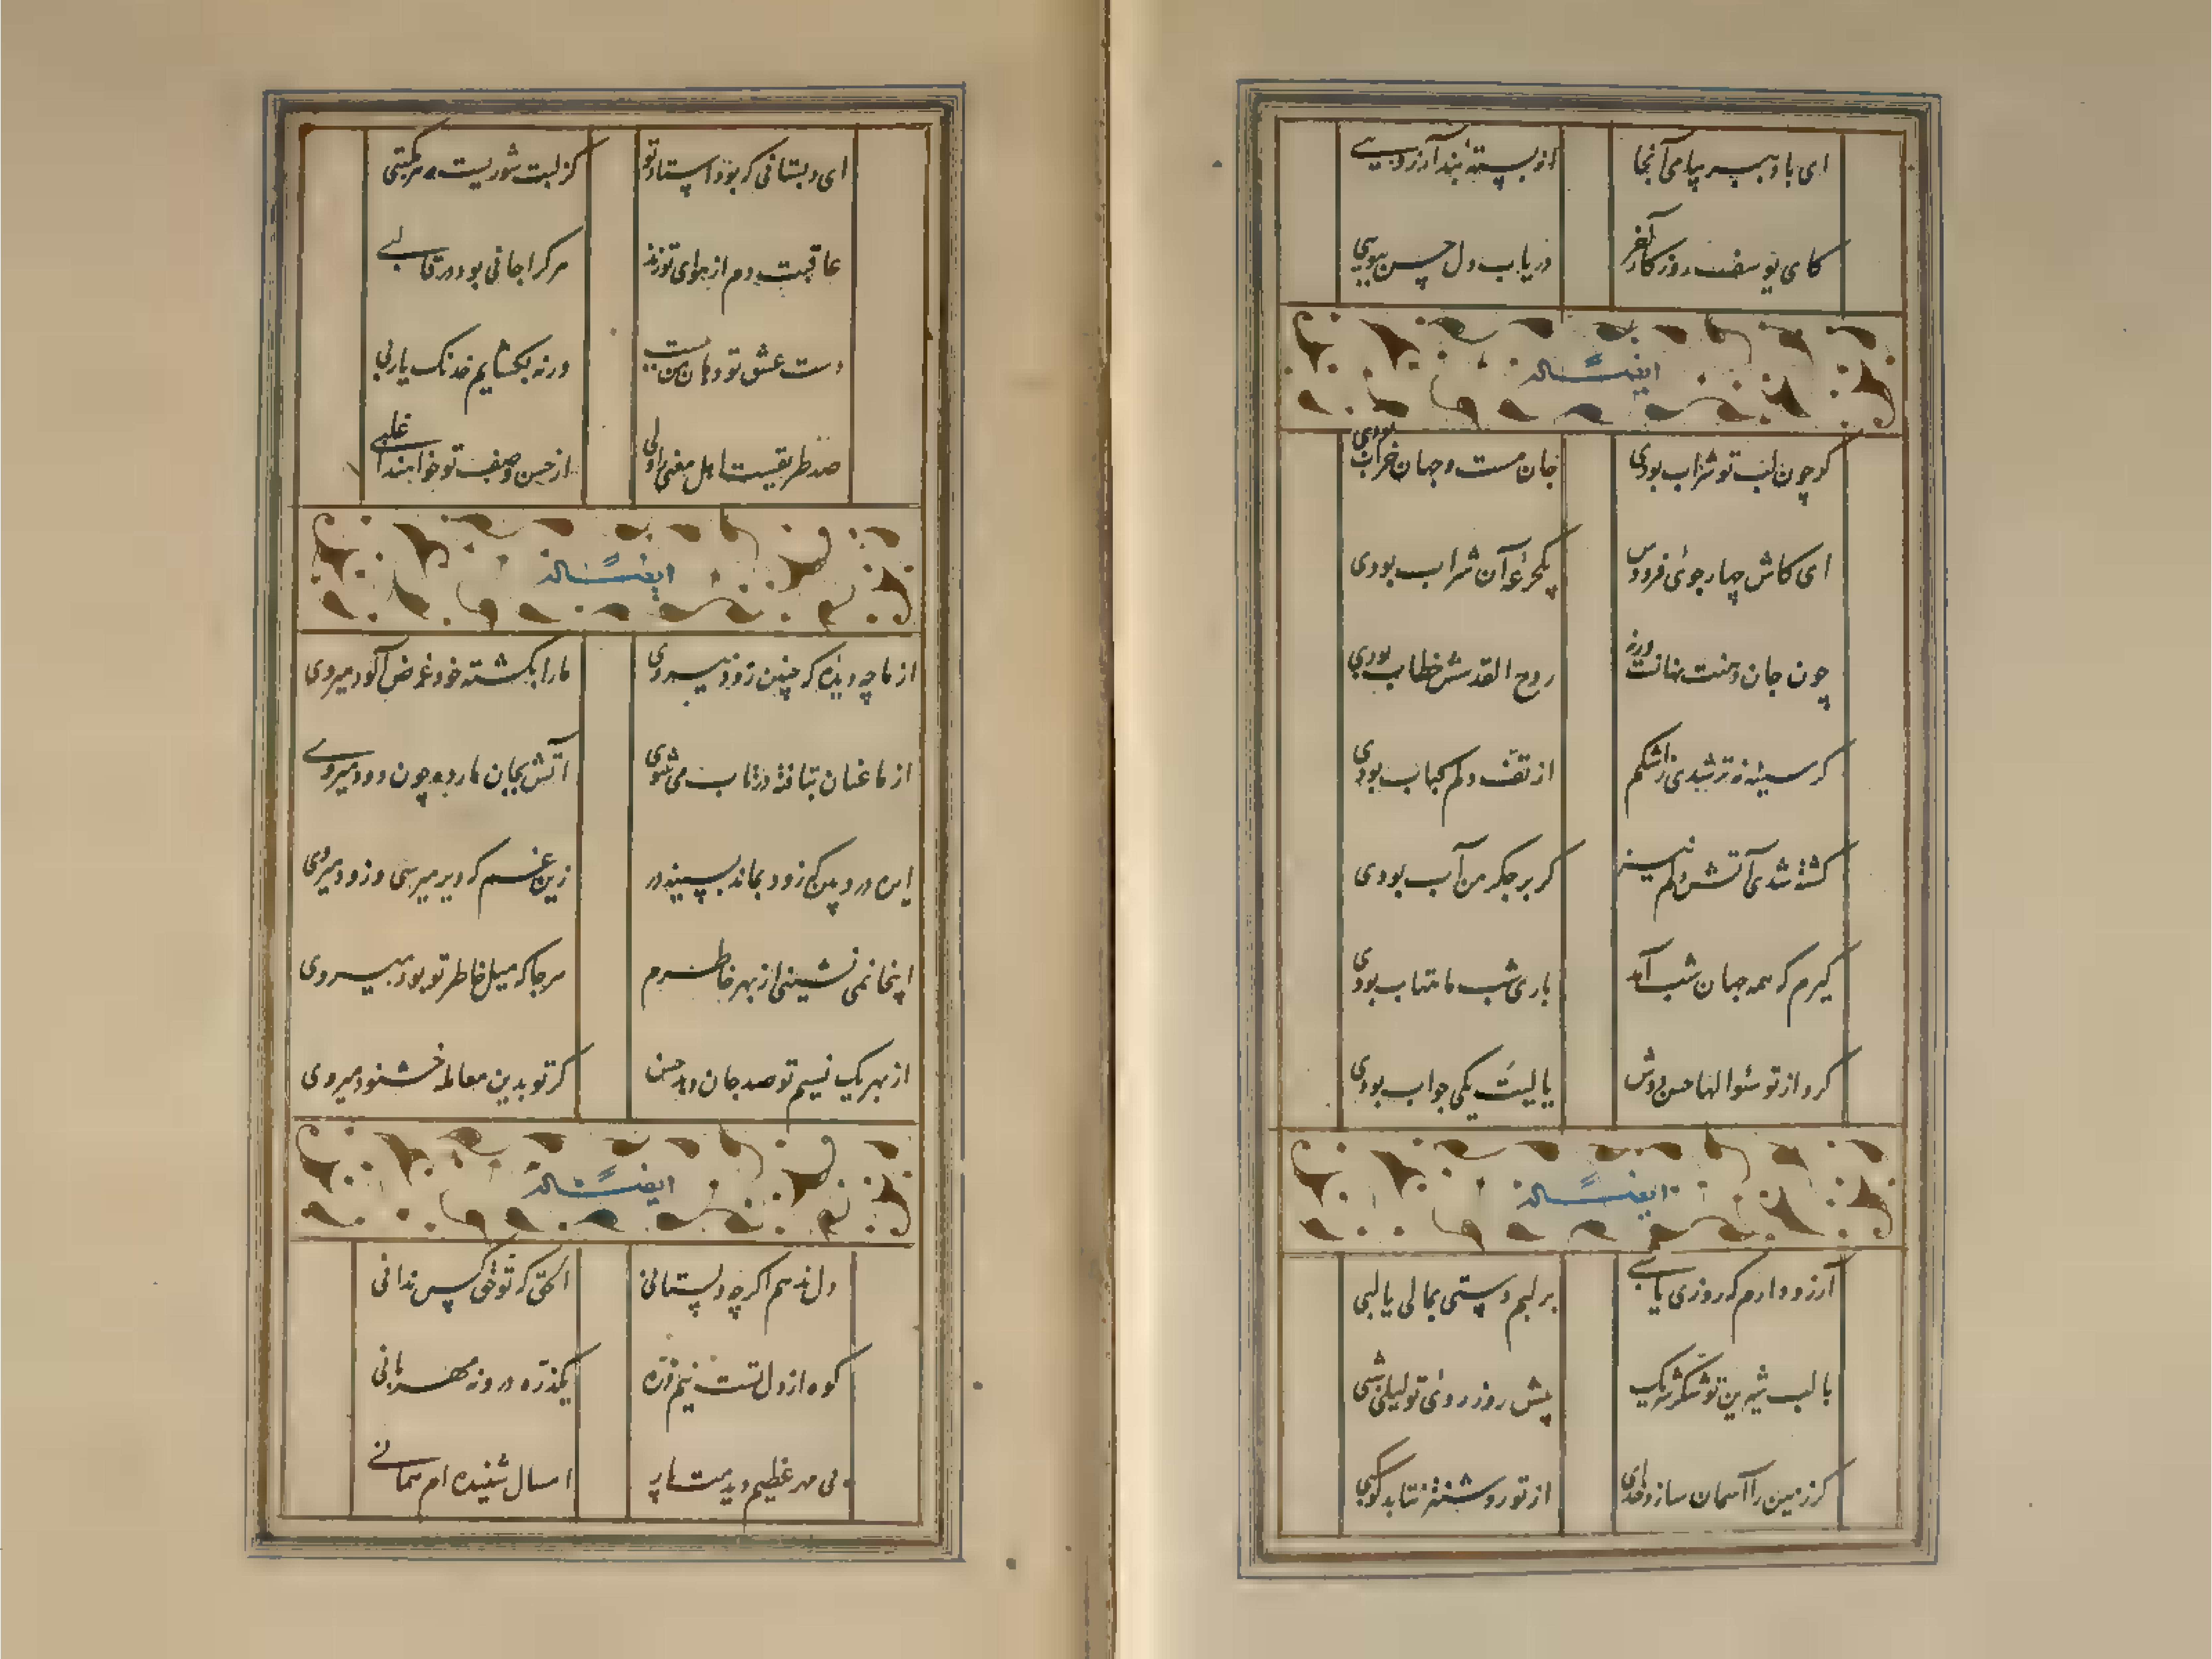 ای باد ببر پیامی آنجا از بستهٔ بند آرزویی
کای یوسف روزگار آخر دریاب دل حسن ببویی
ایضاً له
گر چون لب تو شراب بودی جان مست و جهان خراب بودی
ای کاش چهار جوی فردوس یکجرعهٔ آن شراب بودی
چون جان و تنت نهانت ورنه روح القدسش خطاب بودی
گر سینه نه تر شدی ز اشکم از تف دلم کباب بودی
کشته شدی آتش دلم نیز گر بر جگر من آب بودی
گیرم که همه جهان شب آمد باری شب ماهتاب بودی
کرد از تو سئوالها حسن دوش یا لیت یکی جواب بودی
ایضاً له
آرزو دارم که روزی یا شبی بر لبم دستی بمالی یا لبی
با لب شیرین تو شکر شریک پیش روز روی تو لیلی شبی
گر زمین را آسمان سازد خدای از تو روشنتر نتابد کوکبی
ای دبستانی که بود استاد تو کز لبت شوریست در هر مکتبی
عاقبت دم از هوای تو زند هر کرا جانی بود در قالبی
دست عشق تو دهان من ببست ورنه بگشایم خدنگ یا ربی
صد طریقست اهل معنی را ولی از حسن وصف تو خواهند اغلبی
ایضاً له
از ما چه دیدهٔ که چنین زود میروی ما را بکشته خود غرض آلود میروی
از ما عنان بتافته در تاب می شوی آتش بجان ما زده چون دود میروی
این درد بین که زود بماند بسینه در زین غم که دیر میرسی و زود میروی
اینجا نمی نشینی از بهر خاطرم هر جا که میل خاطر تو بود میروی
از بهر یک نسیم تو صد جان دهد حسن گر تو بدین معامله خشنود میروی
ایضاً له
دل ندهم اگر چه دلستانی الحق که تو حق کس ندانی
کوه از دل تست نیم ذره یکذره درو نه مهربانی
بی مهر عظیم دیدمت پار امسال شنیده ام همانی